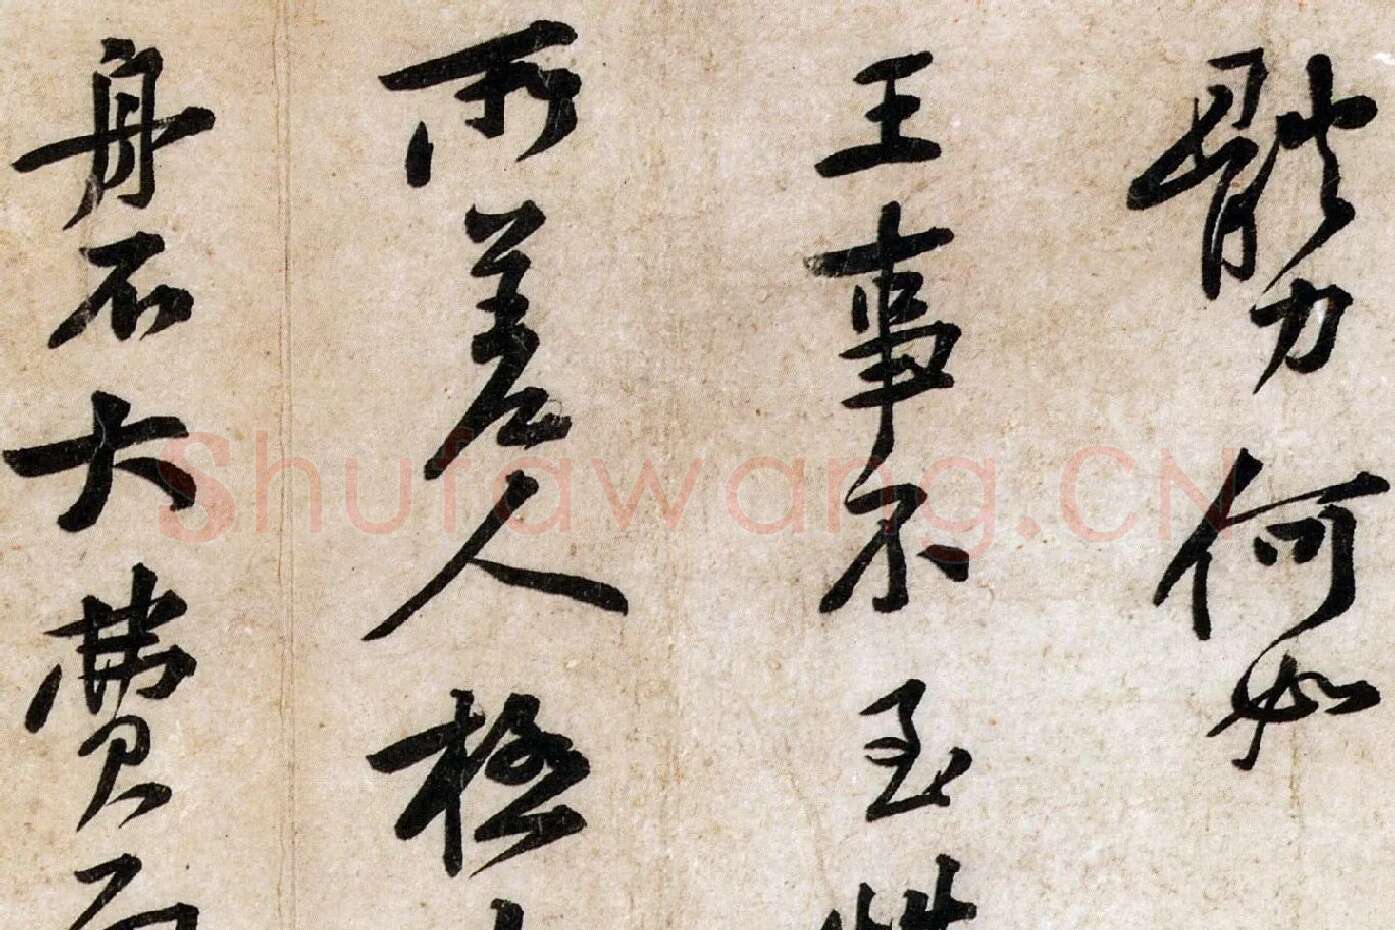 體力何如
王事不至
所差人極
舟不大費
Shufawang.CN